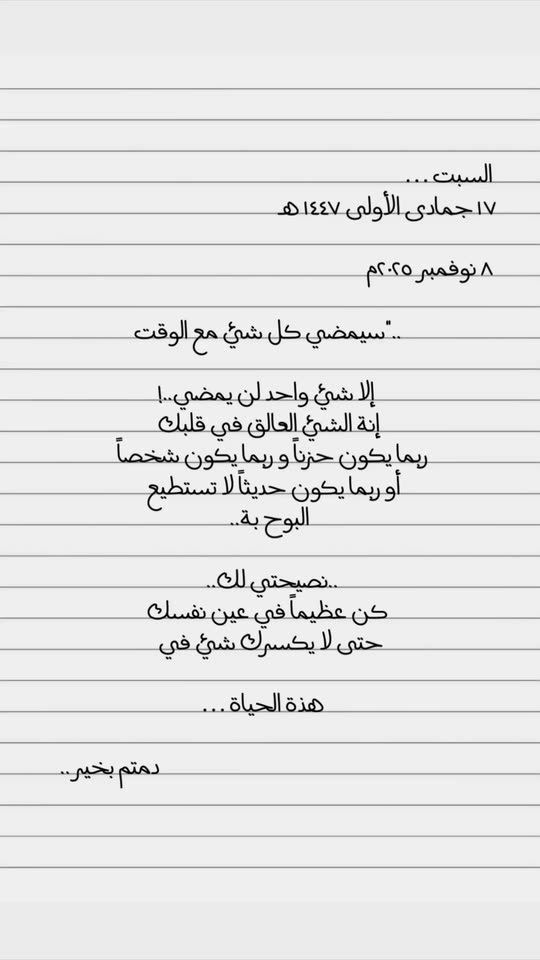 السبت ...
١٧ جمادى الأولى ١٤٤٧ هـ
٨ نوفمبر ٢٠٢٥م
.."سيمضي كل شئ مع الوقت
إلا شئ واحد لن يمضي..!
إنة الشئ العالق في قلبك
ربما يكون حزناً و ربما يكون شخصاً
أو ربما يكون حديثاً لا تستطيع
البوح بة..
..نصيحتي لك..
كن عظيماً في عين نفسك
حتى لا يكسرك شئ في
هذة الحياة ...
دمتم بخير..